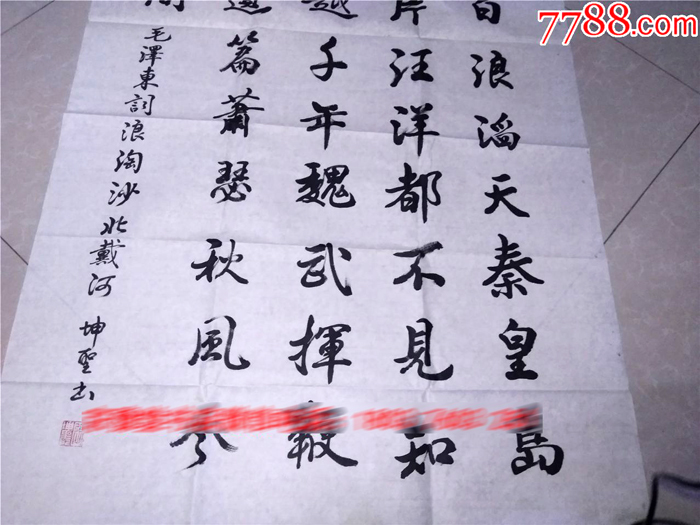 7788.com
白浪滔天秦皇島
片汪洋都不見知
越千年魏武揮鞭
遺篇蕭瑟秋風今
間
毛澤東詞浪淘沙北戴河 坤聖书